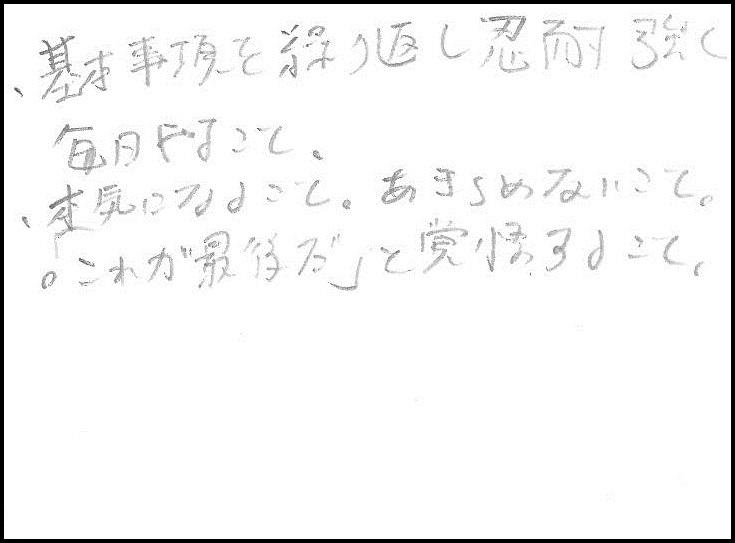 、基本事項を繰り返し忍耐強く
毎日やすこと、
、本気になること。あきらめないこと。
。「これが最後だ」と覚悟すること、